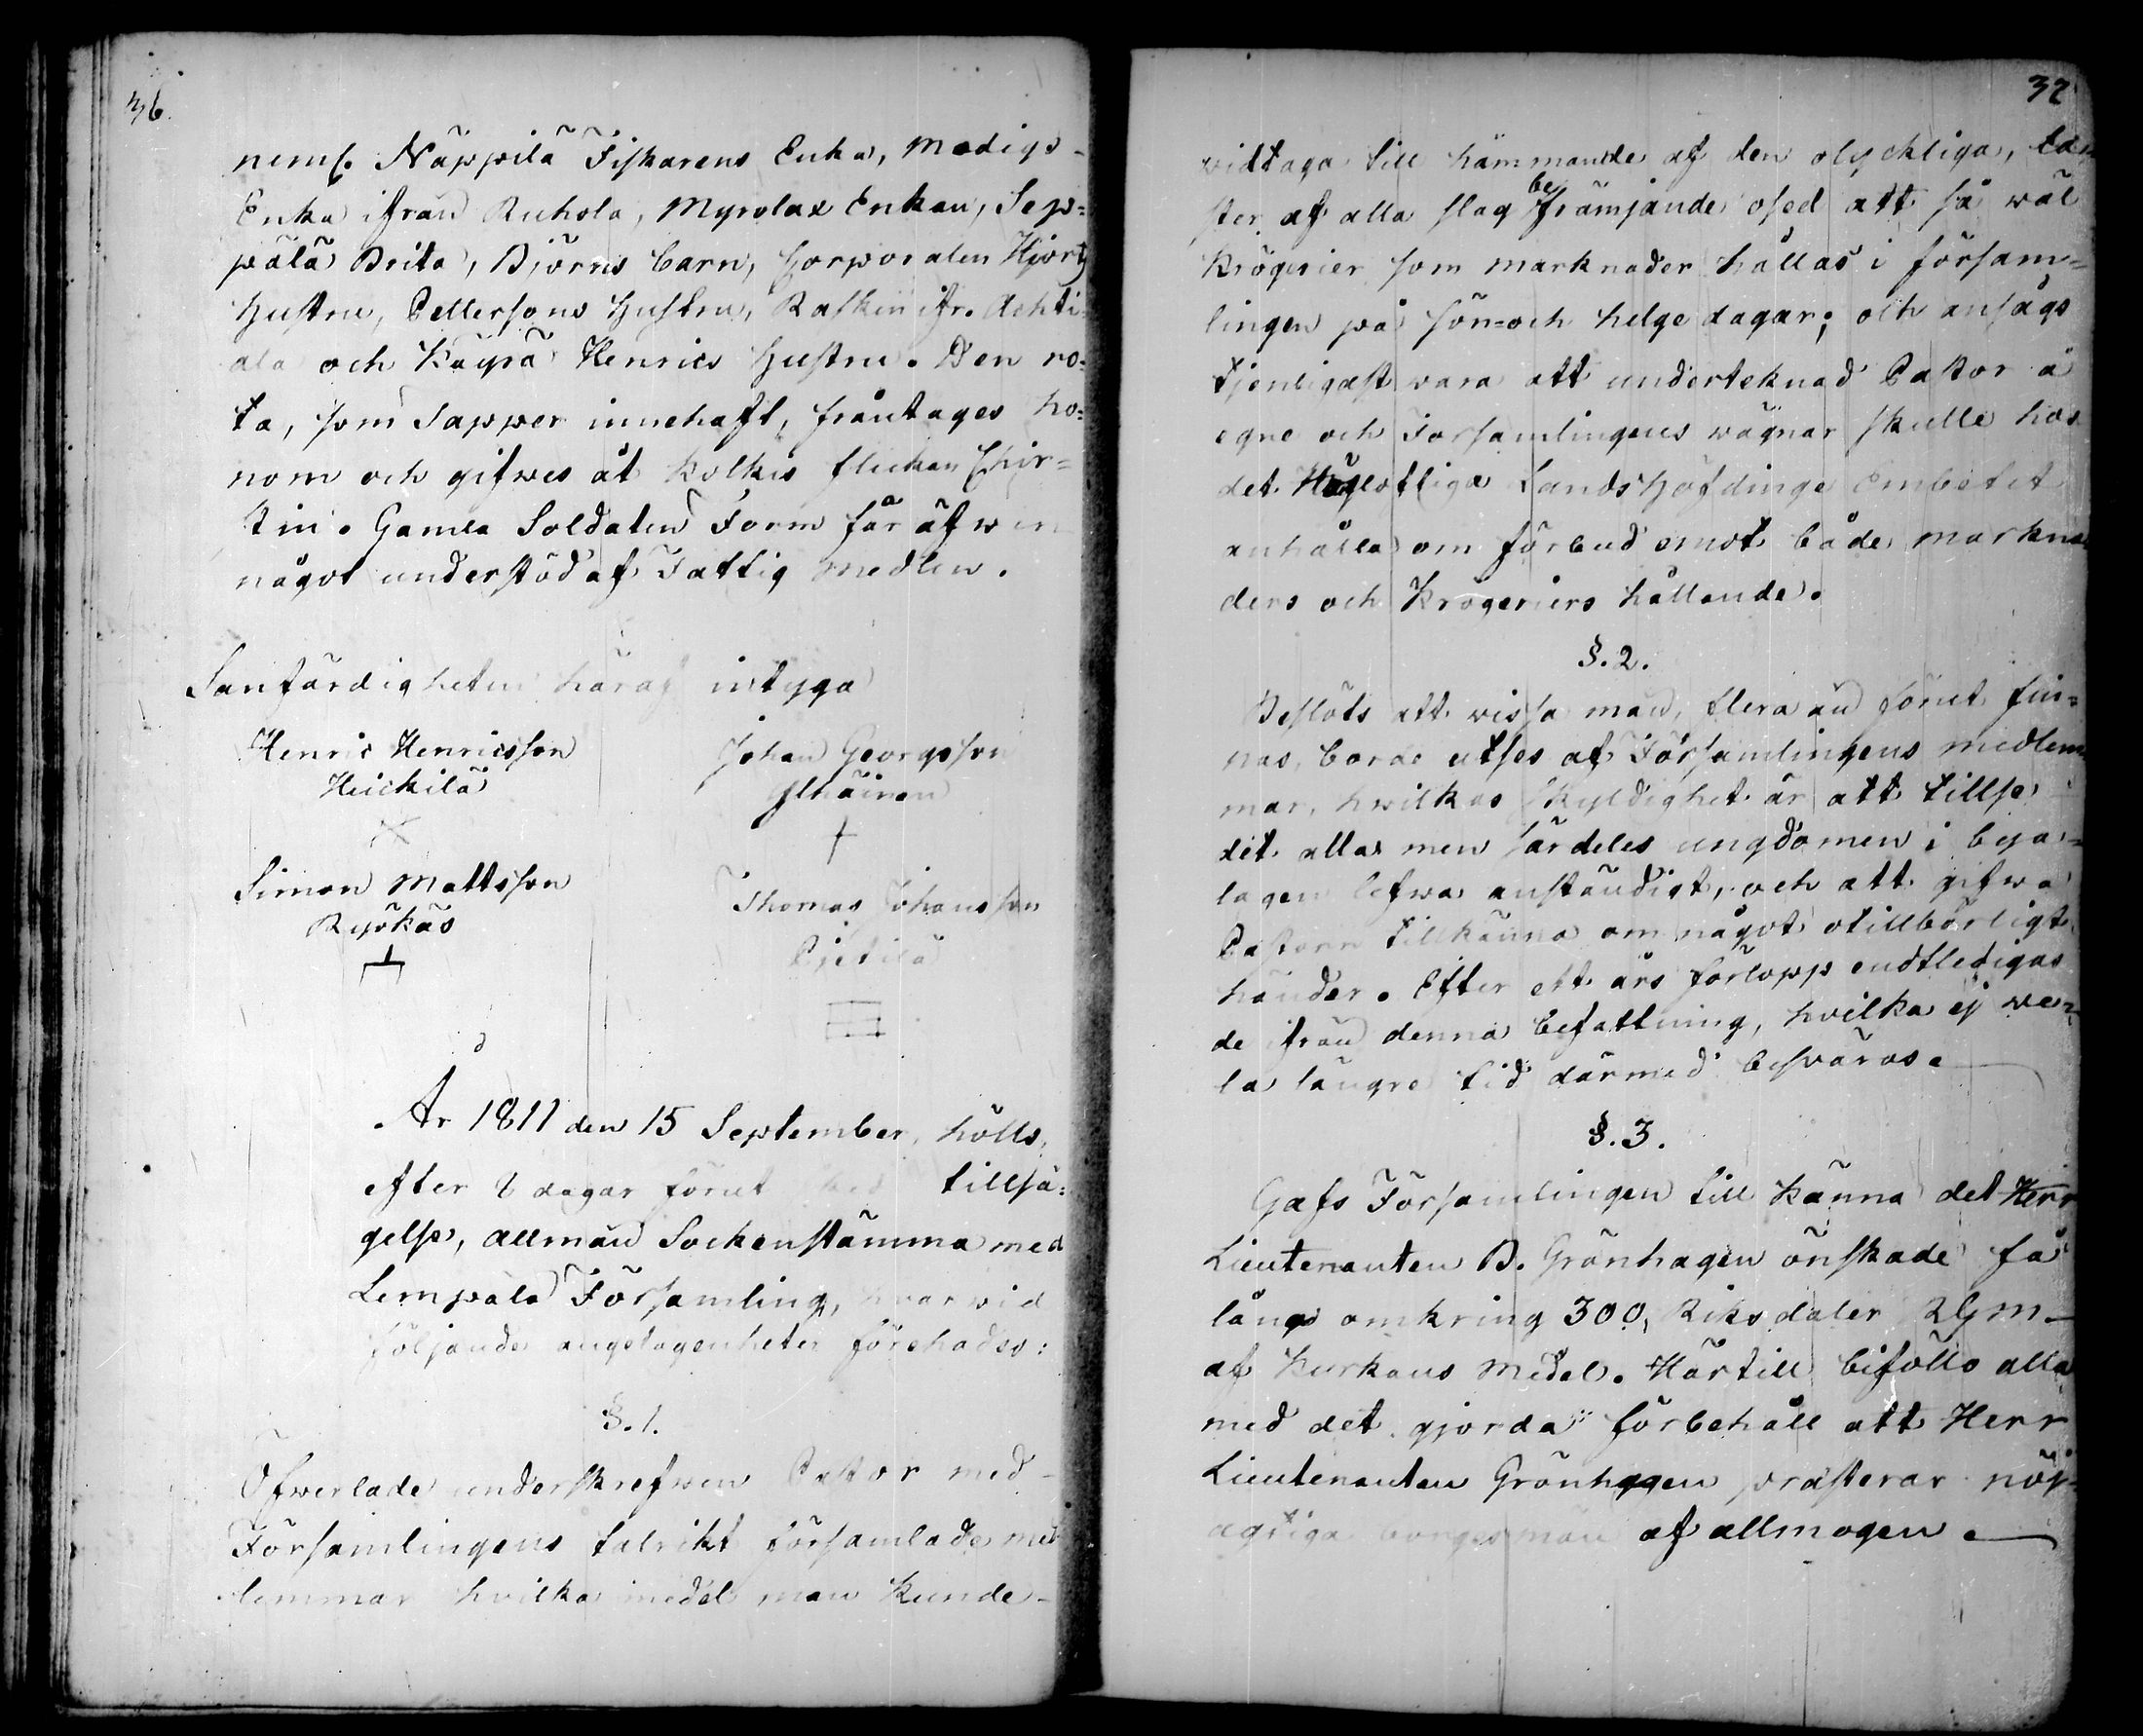 36.
neml. Näppilä Fiskarens Enka, Modigs-
Enka ifrån Ruhola, Myrolax Enkan, Sep=
pälä Brita, Björns barn, Corporalen Hjortz
Hustru, Pettersons Hustru, Raskin ifr. Achti-
ala och Käyrä Henrics Hustru. Den ro=
ta, som Sapper innehaft, fråntages ho=
nom och gifwes åt Kolkis flickan Chir=
stin. Gamla Soldaten Form får äfwen
något understöd af Fattig medlen.
Sanfärdigheten häraf intyga
Henric Henricsson
Heickilä
Johan Georgsson
Ylhäinen
Simon Mattsson
Ryökäs
Thomas Johansson
Pietilä
År 1811 den 15 September, hölls,
efter 8 dagar förut tillsä=
gelse, allmän Sockenstämma med
Lempälä Församling, hvarvid
följande angelägenheter förehades:
§.1.
Öfwerlade underskrefwen Pastor med
Församlingens talrikt församlade med
lemmar hvilka medel man kunde
37
vidtaga till hämmande af den olyckliga, la
ster af alla slag befrämjande osed att så wäl
Krögerier som marknader hållas i försam=
lingen på sön= och helge dagar; och ansågs
tjenligast vara att underteknad Pastor å
egne och Församlingens wägnar skulle hos
det Höglofliga Landshöfdinge Embetet
anhålla om förbud emot både markna
ders och Krögeriers hållande.
§.2.
Beslöts att vissa män, flera än förut fin=
nas, borde utses af Församlingens medlem
mar, hwilkas skyldighet är att tillse
det alla men särdeles ungdomen i bya=
lagen lefwa anständigt, och att gifwa
Pastorn tillkänna om något otillbörligt
händer. Efter ett års förlopp endtledigas
de ifrån denna befattning, hvilka ej we=
la längre tid därmed besväras.
§.3.
Gafs Församlingen till känna det Herr
Lieutenanten B. Grönhagen önskade få
låna omkring 300, Riksdaler RGm
af Kyrkans Medel. Härtill biföllo alla
med det gjorda förbehåll att Herr
Lieutenanten Grönhagen præsterar nöj=
agtiga borgesmän af allmogen.